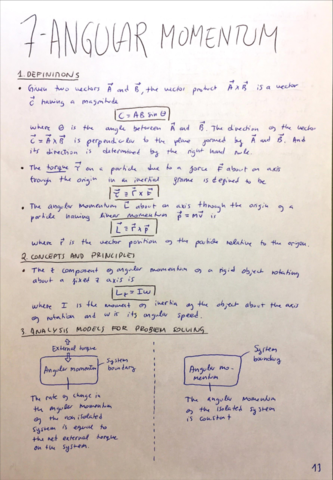 7-ANGULAR MOMENTUM
1. DEFINITIONS
• Given two vectors A⃗ and B⃗, the vector product A⃗ x B⃗ is a vector
C⃗ having a magnitude
C = AB sin θ
where θ is the angle between A⃗ and B⃗. The direction of the vector
C⃗ = A⃗ x B⃗ is perpendicular to the plane formed by A⃗ and B⃗. And
its direction is determined by the right hand rule.
• The torque τ⃗ on a particle due to a force F⃗ about an axis
through the origin in an inertial frame is defined to be
τ⃗ = r⃗ x F⃗
• The angular momentum L⃗ about an axis through the origin of a
particle having linear momentum p⃗ = mv⃗ is
L⃗ = r⃗ x p⃗
where r⃗ is the vector position of the particle relative to the origin
2. CONCEPTS AND PRINCIPLES
• The z component of angular momentum of a rigid object rotating
about a fixed z axis is
= Iω
where I is the moment of inertia of the object about the axis
of rotation and ω is its angular speed.
3. ANALYSIS MODELS FOR PROBLEM SOLVING
External torque
System
boundary
Angular momentum
The rate of change in
the angular momentum
of the nonisolated
system is equal to
the net external torque
on the system.
System
boundary
Angular mo-
mentum
The angular momentum
of the isolated system
is constant
13